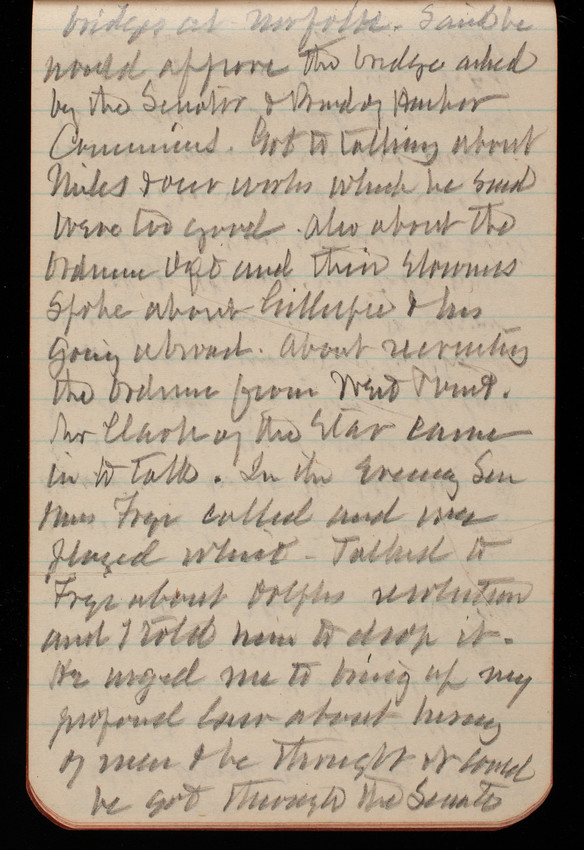 bridges at Norfolk. Said he
would approve the bridge asked
by the Senator &
Got to talking about
Miles & our works which he said
were too good. Also about the
Ordnance Dept and their slowness
Spoke about Gillespie & his
going abroad. About recruiting
the Ordnance from West Point.
Mr Clark of the Star came
in to talk. In the Evening Sen
Mrs Frye called and we
played whist - Talked to
Frye about Dolphs resolution
and I told him to drop it.
He urged me to bring up my
proposed law about hiring
of men & he thought it could
be got through the Senate